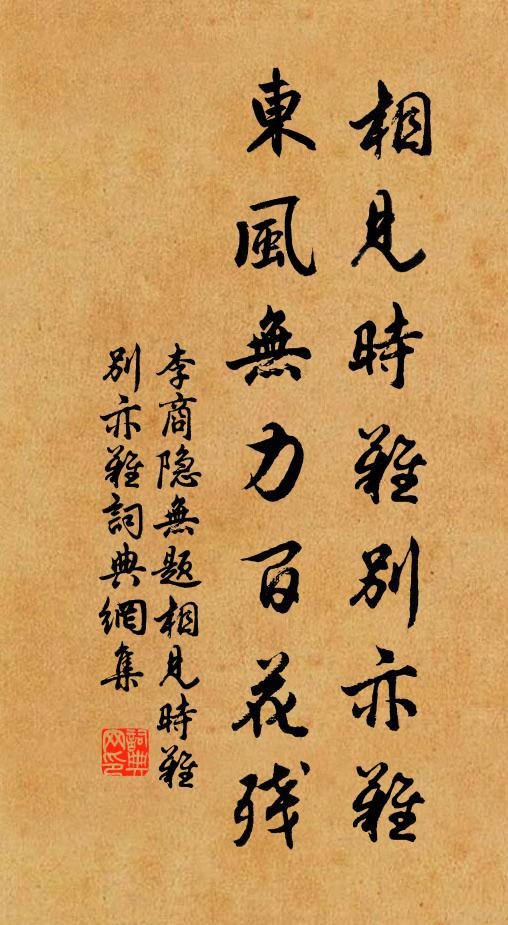 相見時難別亦難
東風無力百花殘
李商隐無题相見時難
別亦難詞典網集
詞典网印